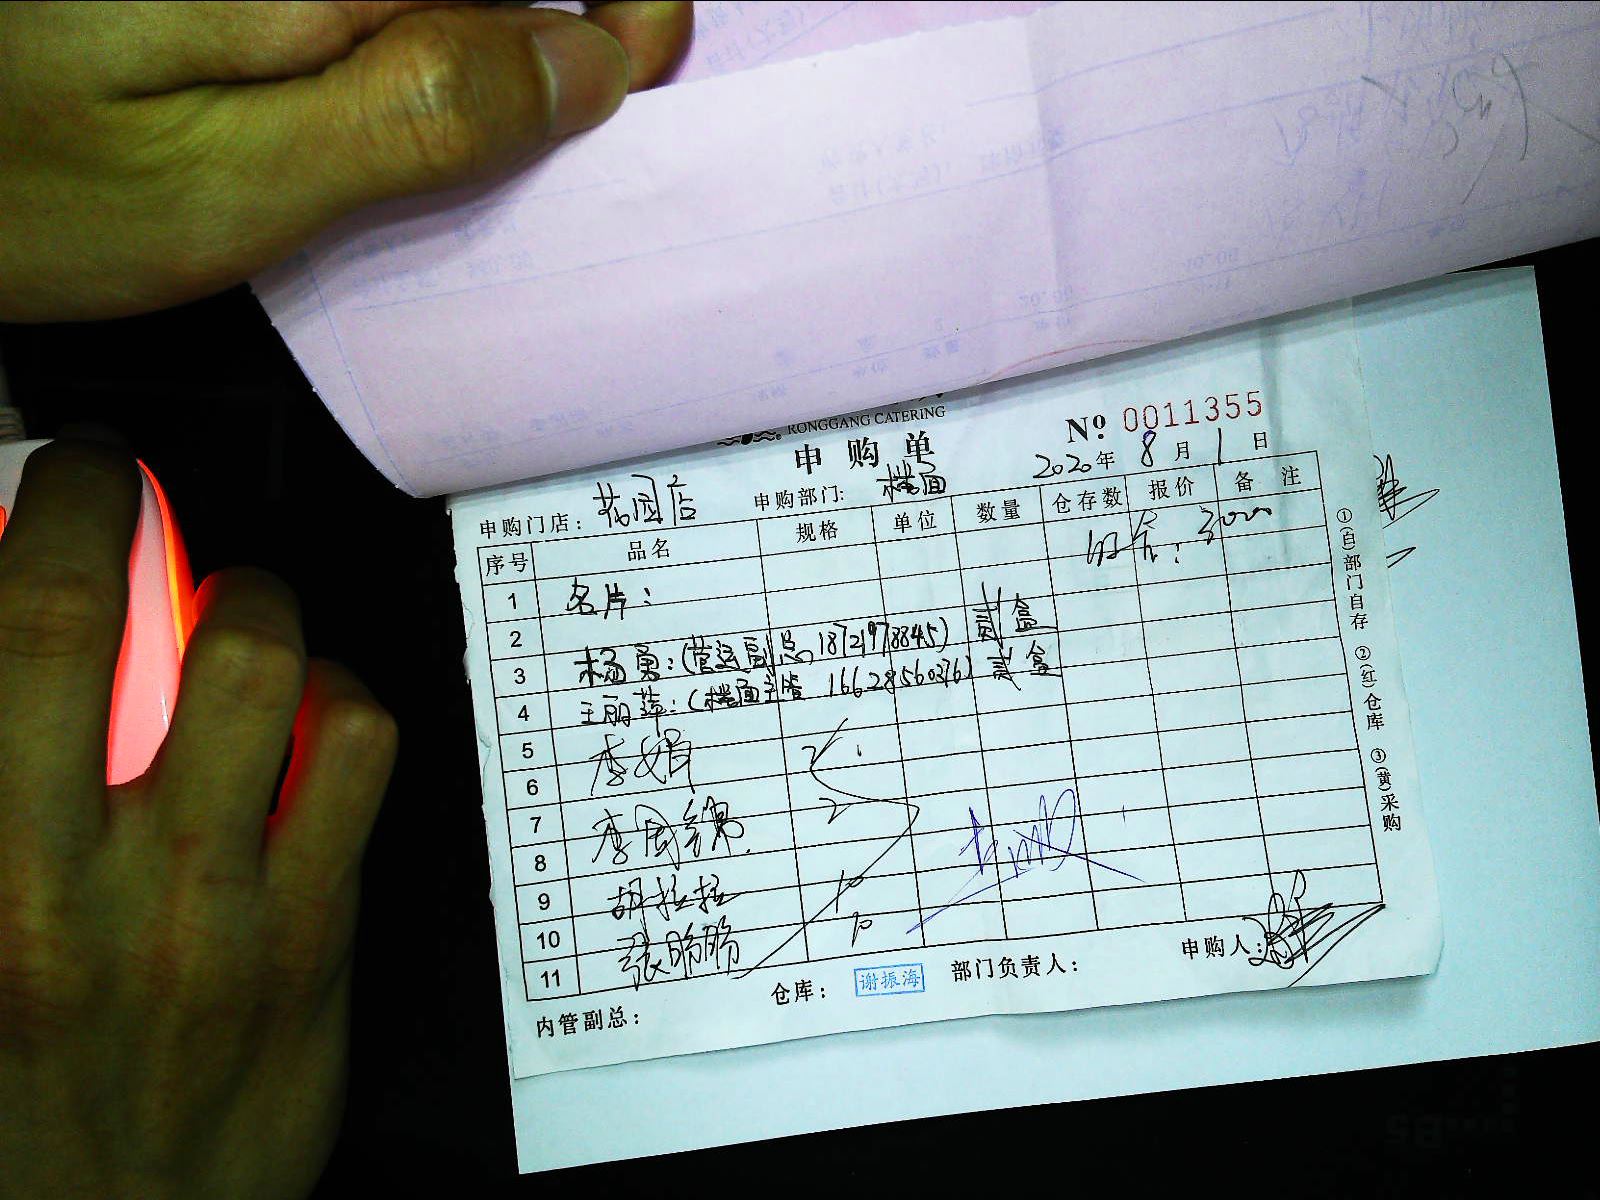 RONGGANG CATERING
申购单
Nº 0011355
2020年 8月 1日
申购门店: 花园店 申购部门: 楼面
序号 品名 规格 单位 数量 仓存数 报价 备注
1 名片:
2
3 杨勇:(营运副总 18721978845) 贰盒
4 王丽萍:(楼面主管 16628560376) 贰盒
5
6 李娟 2
7
8 李国 2
9 胡拉拉 10
10
11 张盼盼 10
①(白)部门自存 ②(红)仓库 ③(黄)采购
内管副总: 仓库: 谢振海 部门负责人: 申购人: